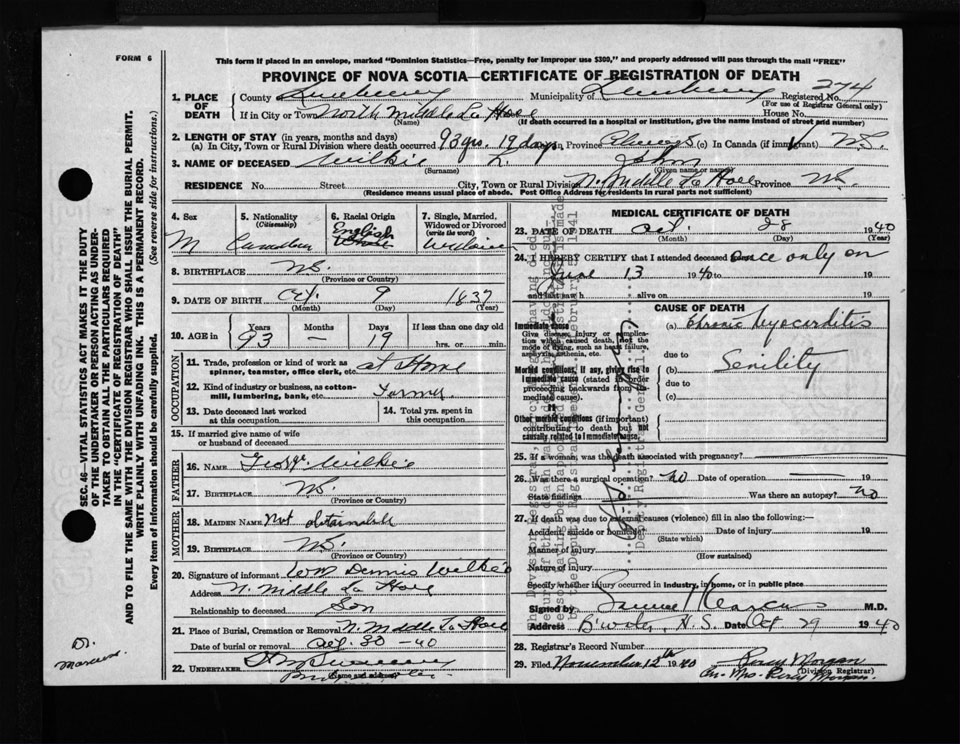 FORM 6
This form if placed in an envelope, marked "Dominion Statistics—Free, penalty for improper use $300," and properly addressed will pass through the mail "FREE"
PROVINCE OF NOVA SCOTIA—CERTIFICATE OF REGISTRATION OF DEATH
274
1. PLACE OF DEATH County Lunenburg Municipality of Lunenburg Registered No.
(For use of Registrar General only)
If in City or Town North Middle La Have House No.
(Name) (If death occurred in a hospital or institution, give the name instead of street and number)
2. LENGTH OF STAY (in years, months and days)
(a) In City, Town or Rural Division where death occurred 93 yrs. 19 days in Province Always (c) In Canada (if immigrant) N.S.
3. NAME OF DECEASED Wilkie John
(Surname) (Given name or names)
RESIDENCE No. Street City, Town or Rural Division N. Middle La Have Province N.S.
(Residence means usual place of abode. Post Office Address for residents in rural parts not sufficient)
4. Sex M
5. Nationality (Citizenship) Canadian
6. Racial Origin English
7. Single, Married, Widowed or Divorced (write the word)
8. BIRTHPLACE N.S.
(Province or Country)
9. DATE OF BIRTH Oct. 9 1837
(Month) (Day) (Year)
10. AGE in Years 93 Months — Days 19 If less than one day old hrs. or min.
OCCUPATION
11. Trade, profession or kind of work as spinner, teamster, office clerk, etc. at Home
12. Kind of industry or business, as cotton-mill, lumbering, bank, etc. Farmer
13. Date deceased last worked at this occupation
14. Total yrs. spent in this occupation
15. If married give name of wife or husband of deceased
FATHER
16. NAME George Wilkie
17. BIRTHPLACE N.S.
(Province or Country)
MOTHER
18. MAIDEN NAME Not obtainable
19. BIRTHPLACE N.S.
(Province or Country)
20. Signature of informant Wm Dennis Wilkie
Address N. Middle La Have
Relationship to deceased Son
21. Place of Burial, Cremation or Removal N. Middle La Have
Date of burial or removal Oct. 30 - 40
22. UNDERTAKER
(Name and address)
MEDICAL CERTIFICATE OF DEATH
23. DATE OF DEATH Oct. 28 1940
(Month) (Day) (Year)
24. I HEREBY CERTIFY that I attended deceased once only on
June 13 1940 to 19
and last saw h alive on 19
CAUSE OF DEATH
Immediate cause
Give disease, injury or complication which caused death, not the mode of dying, such as heart failure, asphyxia, asthenia, etc.
(a) Chronic Myocarditis
due to
Morbid conditions, if any, giving rise to immediate cause (stated in order proceeding backwards from immediate cause).
(b) Senility
due to
(c)
Other morbid conditions (if important) contributing to death but not causally related to immediate cause.
25. If a woman, was the death associated with pregnancy?
26. Was there a surgical operation? no Date of operation
State findings Was there an autopsy? no
27. If death was due to external causes (violence) fill in also the following:—
Accident, suicide or homicide? Date of injury 19
(State which)
Manner of injury
(How sustained)
Nature of injury
Specify whether injury occurred in industry, in home, or in public place
Signed by M.D.
Address B'water, N.S. Date Oct 29 1940
28. Registrar's Record Number
29. Filed November 12th 1940 Percy Morgan
(Division Registrar)
Per Mrs. Percy Morgan.
SEC. 46—VITAL STATISTICS ACT MAKES IT THE DUTY OF THE UNDERTAKER OR PERSON ACTING AS UNDERTAKER TO OBTAIN ALL THE PARTICULARS REQUIRED IN THE "CERTIFICATE OF REGISTRATION OF DEATH" AND TO FILE THE SAME WITH THE DIVISION REGISTRAR WHO SHALL ISSUE THE BURIAL PERMIT.
WRITE PLAINLY WITH UNFADING INK. THIS IS A PERMANENT RECORD.
Every item of information should be carefully supplied. (See reverse side for instructions.)